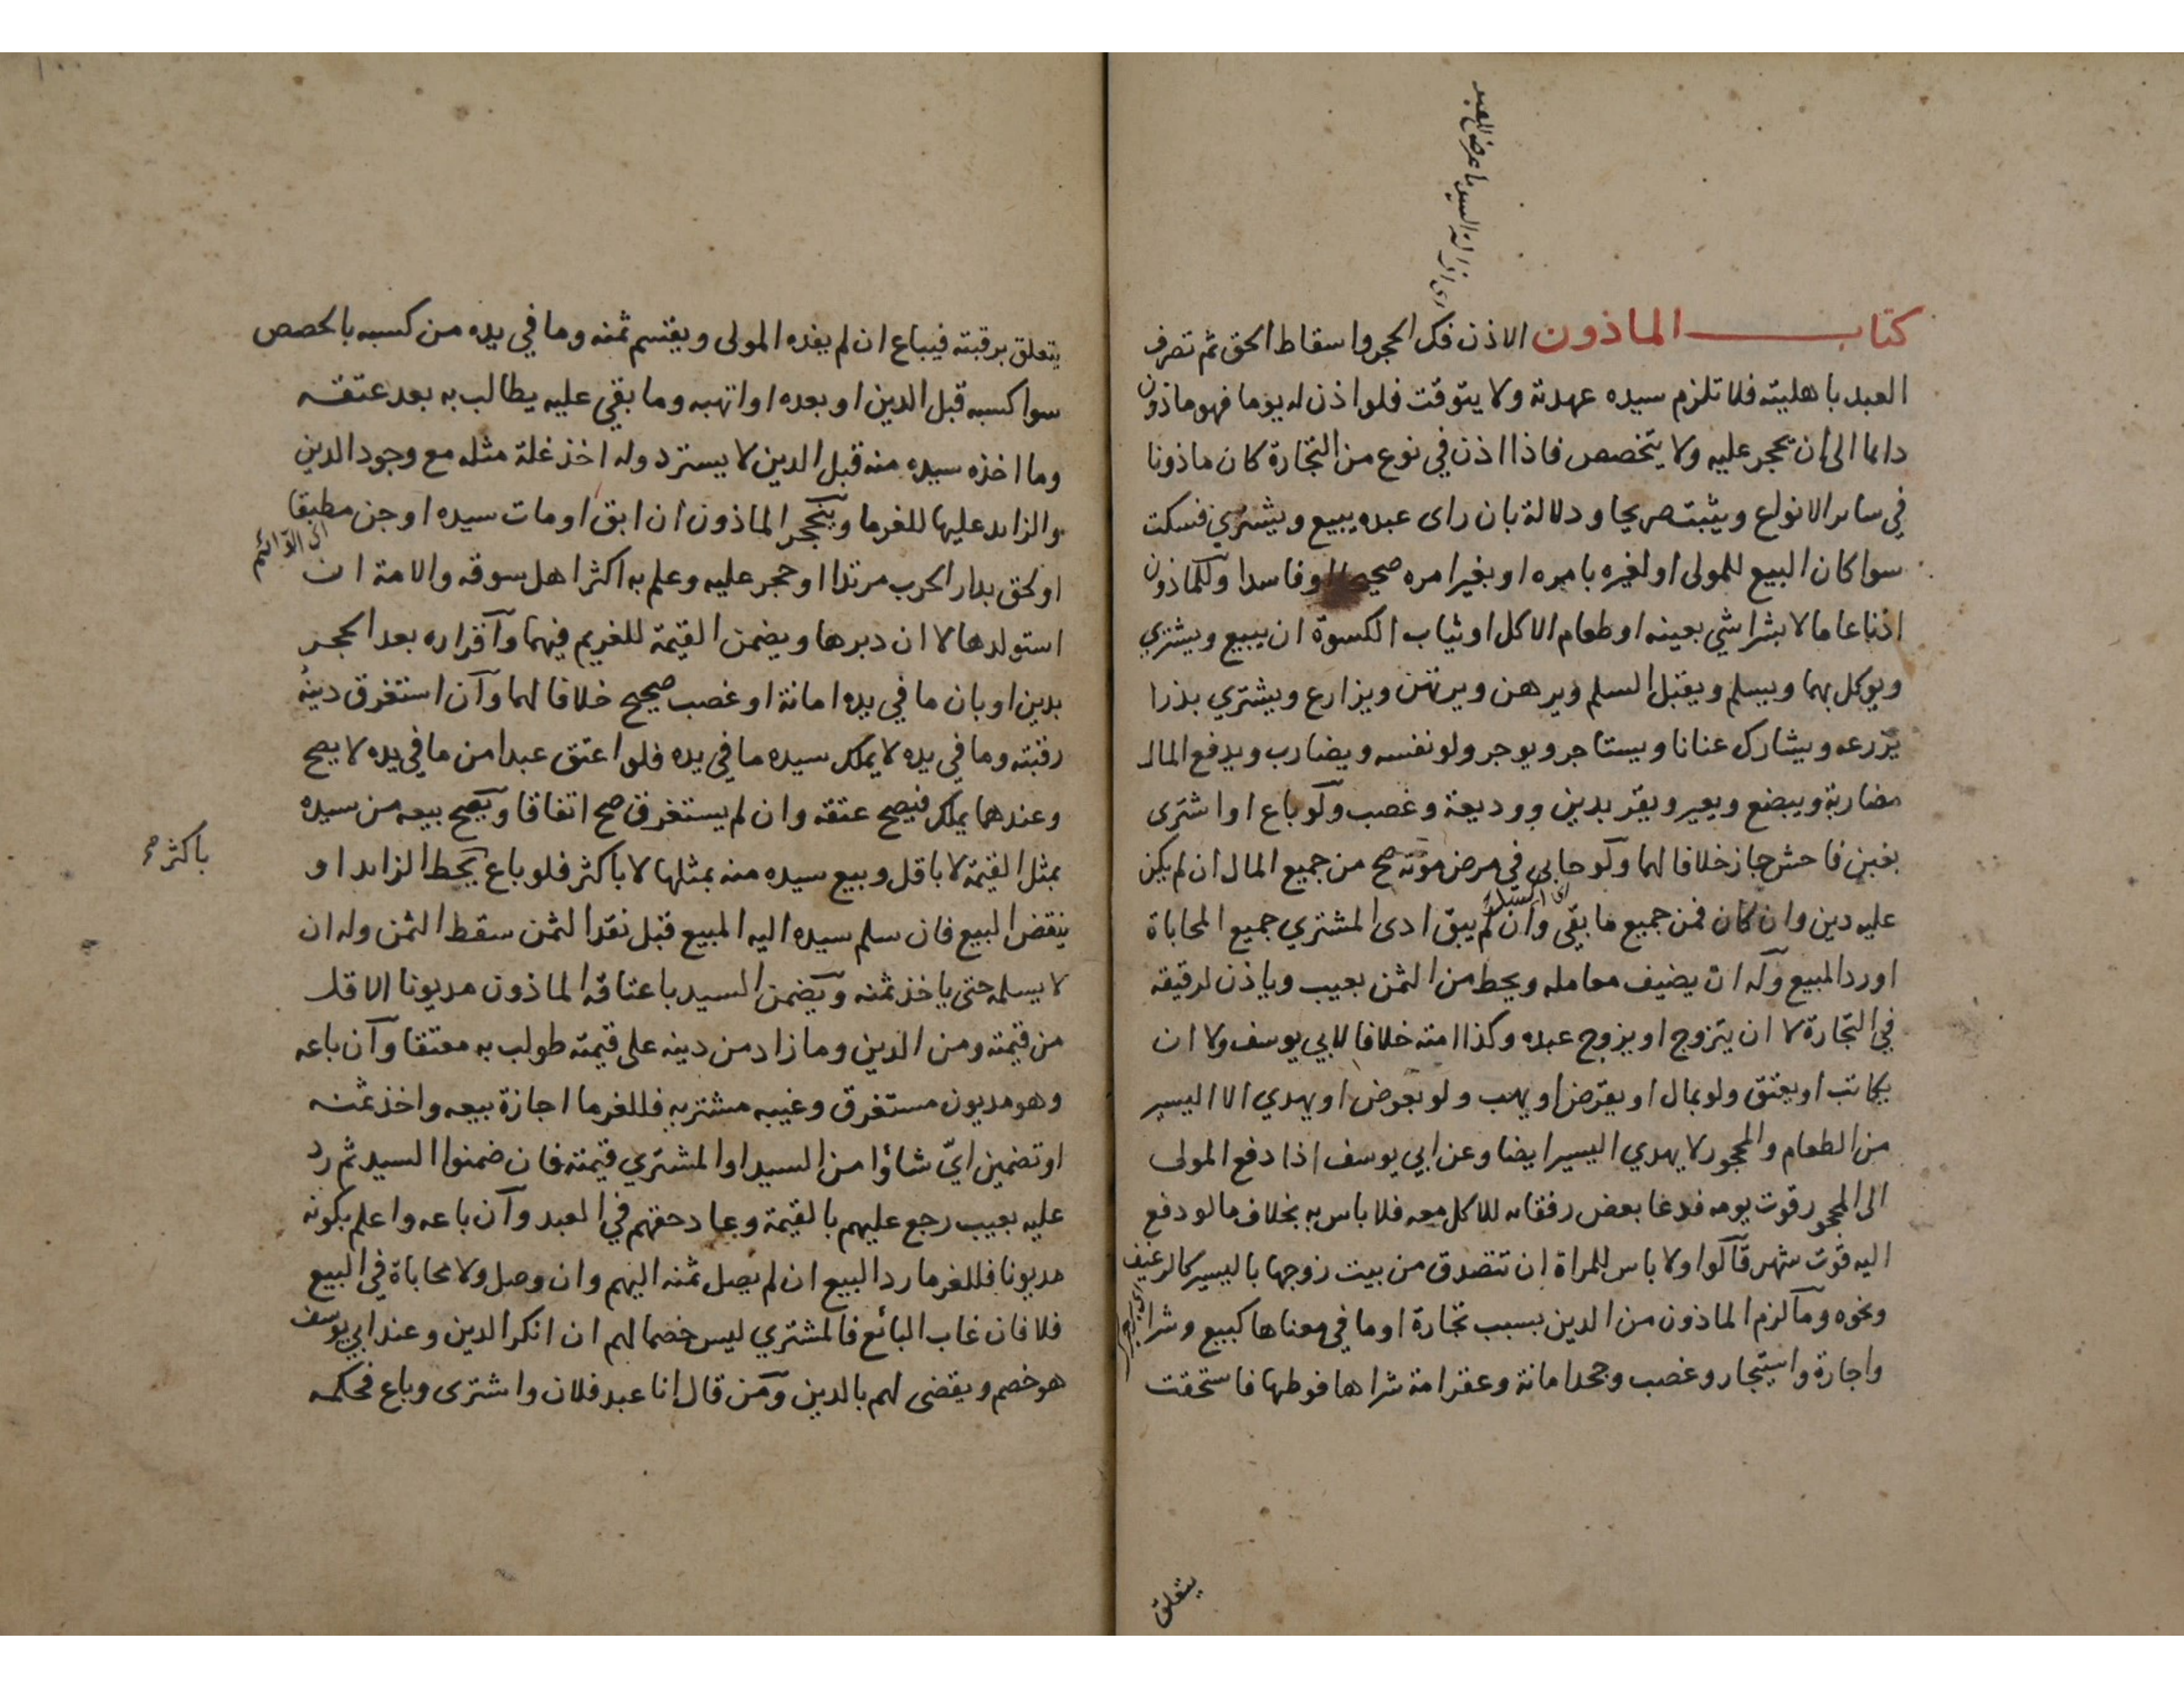 كتاب الماذون الاذن فك الحجر واسقاط الحق ثم تصرف
العبد باهليته فلا تلزم سيده عهدته ولا يتوقت فلو اذن له يوما فهو ماذون
دائما الى ان يحجر عليه ولا يتخصص فاذا اذن في نوع من التجارة كان ماذونا
في ساير الانواع ويثبت صريحا ودلالة بان راى عبده يبيع ويشتري فسكت
سوا كان البيع للمولى او لغيره بامره او بغير امره صحيحا او فاسدا وللماذون
اذنا عاما لا بشرا شي بعينه او طعام الاكل او ثياب الكسوة ان يبيع ويشتري
ويوكل بهما ويسلم ويقبل السلم ويرهن ويرتهن ويزارع ويشتري بذرا
يزرعه ويشارك عنانا ويستاجر ويوجر ولو نفسه ويضارب ويدفع المال
مضاربة ويبضع ويعير ويقر بدين ووديعة وغصب ولو باع او اشترى
بغبن فاحش جاز خلافا لهما ولو حابى في مرض موته صح من جميع المال ان لم يكن
عليه دين وان كان فمن جميع ما بقي وان لم يبق ادى المشتري جميع المحاباة
او رد المبيع وله ان يضيف معامله ويحط من الثمن بعيب وياذن لرقيقه
في التجارة لا ان يتزوج او يزوج عبده وكذا امته خلافا لابي يوسف ولا ان
يكاتب او يعتق ولو بمال او يقرض او يهب ولو بعوض او يهدي الا اليسير
من الطعام والمحجور لا يهدي اليسير ايضا وعن ابي يوسف اذا دفع المولى
الى المحجور قوت يومه فدعا بعض رفقائه للاكل معه فلا باس به بخلاف ما لو دفع
اليه قوت شهر قالوا ولا باس للمراة ان تتصدق من بيت زوجها باليسير كالرغيف
ونحوه وما لزم الماذون من الدين بسبب تجارة او ما في معناها كبيع وشرا
واجارة واستيجار وغصب وجحد امانة وعقر امة شراها فوطها فاستحقت
يتعلق
يتعلق برقبته فيباع ان لم يفده المولى ويقتسم ثمنه وما في يده من كسبه بالحصص
سوا كسبه قبل الدين او بعده او اتهبه وما بقي عليه يطالب به بعد عتقه
وما اخذه سيده منه قبل الدين لا يسترد وله اخذ غلة مثله مع وجود الدين
والزائد عليها للغرما وينحجر الماذون ان ابق او مات سيده او جن مطبقا
او لحق بدار الحرب مرتدا او حجر عليه وعلم به اكثر اهل سوقه والامة ان
استولدها لا ان دبرها ويضمن القيمة للغريم فيهما واقراره بعد الحجر
بدين او بان ما في يده امانة او غصب صحيح خلافا لهما وان استغرق دينه
رقبته وما في يده لا يملك سيده ما في يده فلو اعتق عبدا من ما في يده لا يصح
وعندهما يملك فيصح عتقه وان لم يستغرق صح اتفاقا ويصح بيعه من سيده
بمثل القيمة لا باقل وبيع سيده منه بمثلها لا باكثر فلو باع يحط الزائد او
باكثر صح
ينقض البيع فان سلم سيده اليه المبيع قبل نقد الثمن سقط الثمن وله ان
لا يسلمه حتى ياخذ ثمنه ويضمن السيد باعتاقه الماذون مديونا الاقل
من قيمته ومن الدين وما زاد من دينه على قيمته طولب به معتقا وان باعه
وهو مديون مستغرق وغيبه مشتريه فللغرما اجازة بيعه واخذ ثمنه
او تضمين اي شاؤا من السيد او المشتري قيمته فان ضمنوا السيد ثم رد
عليه بعيب رجع عليهم بالقيمة وعاد حقهم في العبد وان باعه واعلم بكونه
مديونا فللغرما رد البيع ان لم يصل ثمنه اليهم وان وصل ولا محاباة في البيع
فلا فان غاب البائع فالمشتري ليس خصما لهم ان انكر الدين وعند ابي يوسف
هو خصم ويقضى لهم بالدين ومن قال انا عبد فلان واشترى وباع فحكمه